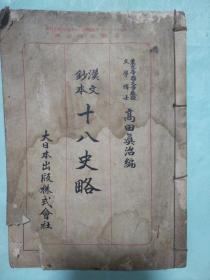 文學博士 高田眞治編
漢文鈔本 十八史略
大日本出版株式會社